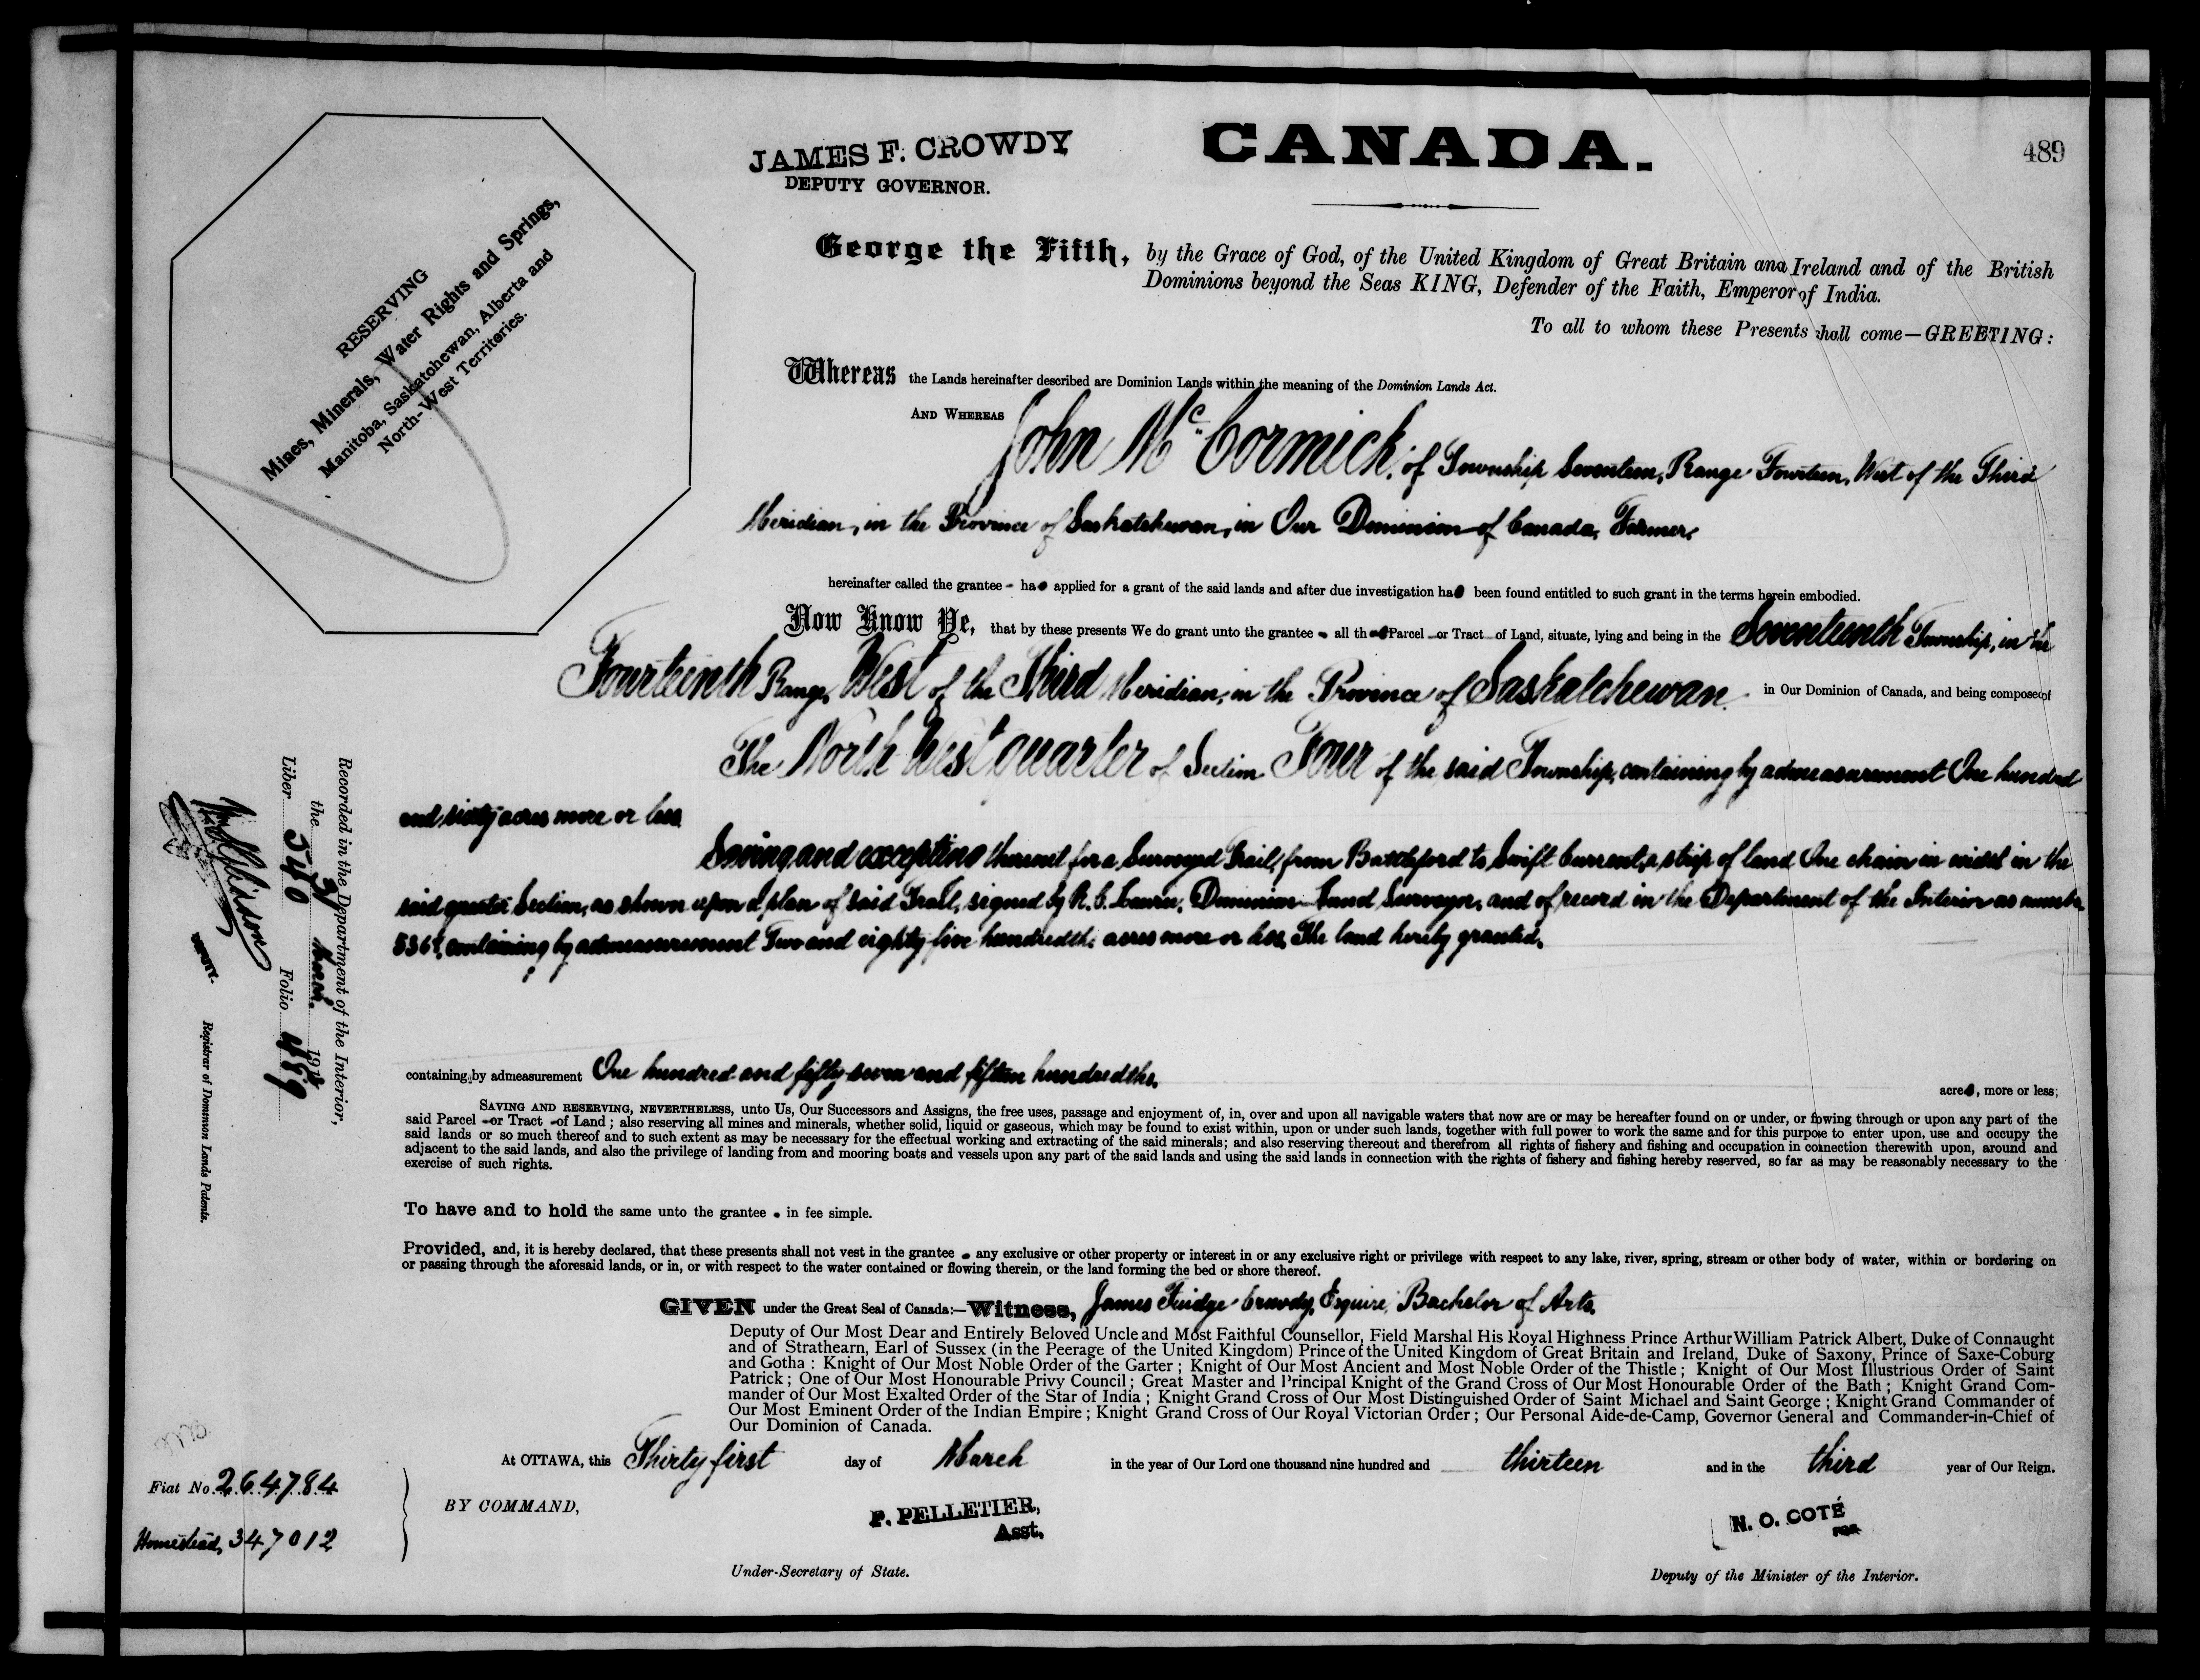 JAMES F. CROWDY
DEPUTY GOVERNOR.
CANADA.
489
RESERVING
Mines, Minerals, Water Rights and Springs,
Manitoba, Saskatchewan, Alberta and
North-West Territories.
George the Fifth, by the Grace of God, of the United Kingdom of Great Britain and Ireland and of the British
Dominions beyond the Seas KING, Defender of the Faith, Emperor of India.
To all to whom these Presents shall come—GREETING:
Whereas the Lands hereinafter described are Dominion Lands within the meaning of the Dominion Lands Act.
AND WHEREAS John McCormick, of Township Seventeen, Range Fourteen, West of the Third
Meridian, in the Province of Saskatchewan, in Our Dominion of Canada, Farmer,
hereinafter called the grantee - has applied for a grant of the said lands and after due investigation has been found entitled to such grant in the terms herein embodied.
Now Know Ye, that by these presents We do grant unto the grantee - all that Parcel - or Tract - of Land, situate, lying and being in the Seventeenth Township, in the
Fourteenth Range, West of the Third Meridian, in the Province of Saskatchewan in Our Dominion of Canada, and being composed of
The North West quarter of Section Four of the said Township, containing by admeasurement One hundred
and sixty acres more or less
Saving and excepting thereout for a Surveyed Trail, from Battleford to Swift Current, a strip of land One chain in width in the
said quarter Section, as shown upon a plan of said Trail, signed by R. C. Laurie, Dominion Land Surveyor, and of record in the Department of the Interior as number
containing by admeasurement Two and eighty five hundredths acres more or less, The land hereby granted,
containing by admeasurement One hundred and fifty seven and fifteen hundredths. acres, more or less;
SAVING AND RESERVING, NEVERTHELESS, unto Us, Our Successors and Assigns, the free uses, passage and enjoyment of, in, over and upon all navigable waters that now are or may be hereafter found on or under, or flowing through or upon any part of the
said Parcel - or Tract - of Land; also reserving all mines and minerals, whether solid, liquid or gaseous, which may be found to exist within, upon or under such lands, together with full power to work the same and for this purpose to enter upon, use and occupy the
said lands or so much thereof and to such extent as may be necessary for the effectual working and extracting of the said minerals; and also reserving thereout and therefrom all rights of fishery and fishing and occupation in connection therewith upon, around and
adjacent to the said lands, and also the privilege of landing from and mooring boats and vessels upon any part of the said lands and using the said lands in connection with the rights of fishery and fishing hereby reserved, so far as may be reasonably necessary to the
exercise of such rights.
To have and to hold the same unto the grantee - in fee simple.
Provided, and, it is hereby declared, that these presents shall not vest in the grantee - any exclusive or other property or interest in or any exclusive right or privilege with respect to any lake, river, spring, stream or other body of water, within or bordering on
or passing through the aforesaid lands, or in, or with respect to the water contained or flowing therein, or the land forming the bed or shore thereof.
GIVEN under the Great Seal of Canada:—Witness, James Fuidge Crowdy, Esquire, Bachelor of Arts,
Deputy of Our Most Dear and Entirely Beloved Uncle and Most Faithful Counsellor, Field Marshal His Royal Highness Prince Arthur William Patrick Albert, Duke of Connaught
and of Strathearn, Earl of Sussex (in the Peerage of the United Kingdom) Prince of the United Kingdom of Great Britain and Ireland, Duke of Saxony, Prince of Saxe-Coburg
and Gotha: Knight of Our Most Noble Order of the Garter; Knight of Our Most Ancient and Most Noble Order of the Thistle; Knight of Our Most Illustrious Order of Saint
Patrick; One of Our Most Honourable Privy Council; Great Master and Principal Knight of the Grand Cross of Our Most Honourable Order of the Bath; Knight Grand Com-
mander of Our Most Exalted Order of the Star of India; Knight Grand Cross of Our Most Distinguished Order of Saint Michael and Saint George; Knight Grand Commander of
Our Most Eminent Order of the Indian Empire; Knight Grand Cross of Our Royal Victorian Order; Our Personal Aide-de-Camp, Governor General and Commander-in-Chief of
Our Dominion of Canada.
At OTTAWA, this Thirty first day of March in the year of Our Lord one thousand nine hundred and thirteen and in the third year of Our Reign.
BY COMMAND,
P. PELLETIER,
Asst.
Under-Secretary of State.
N. O. COTÉ
FOR
Deputy of the Minister of the Interior.
Fiat No. 264784
Homestead, 347012
Recorded in the Department of the Interior,
the 31 191
Liber 540 Folio 489
DEPUTY-
Registrar of Dominion Lands Patents.